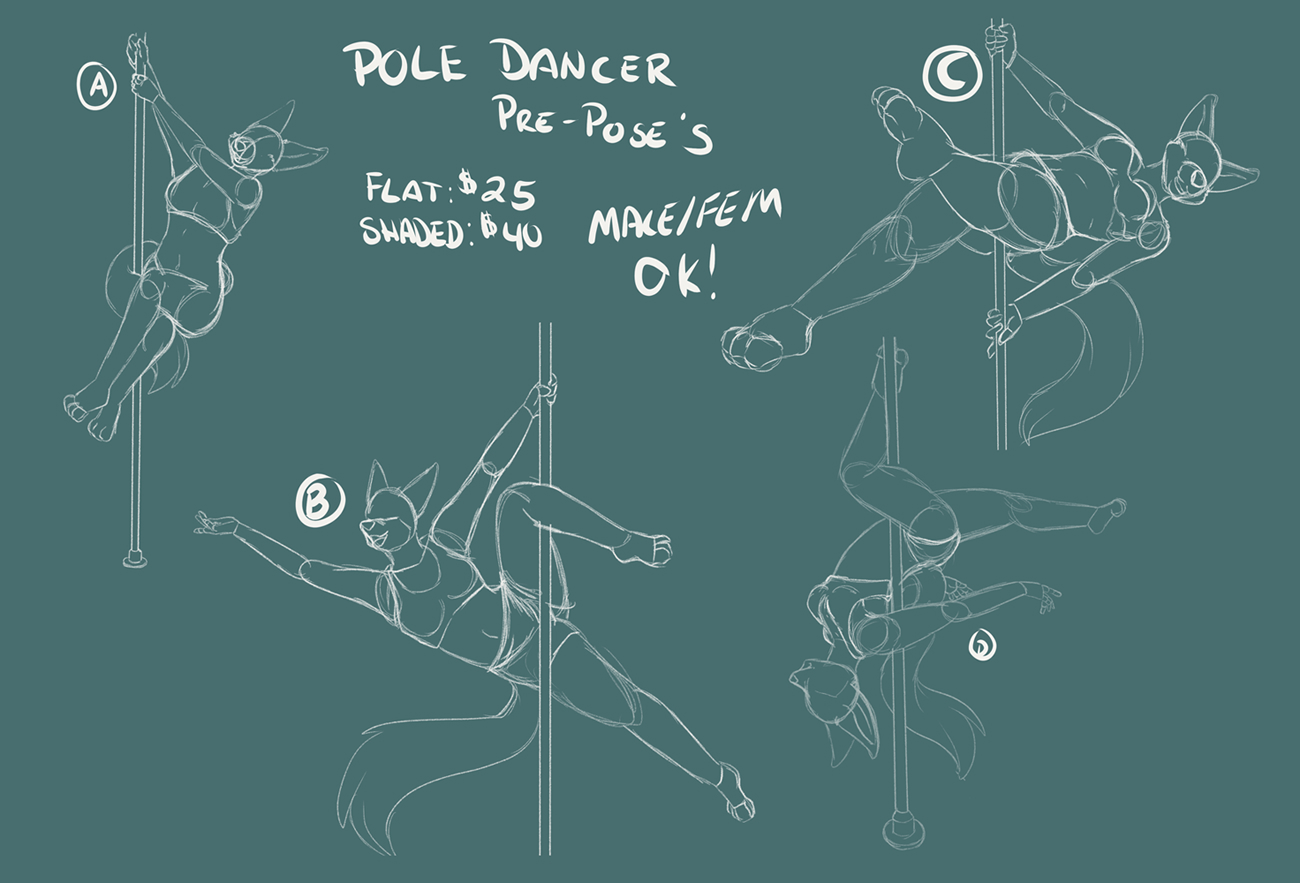 POLE DANCER
PRE-POSE'S
FLAT: $25
SHADED: $40
MALE/FEM
OK!
A
B
C
D